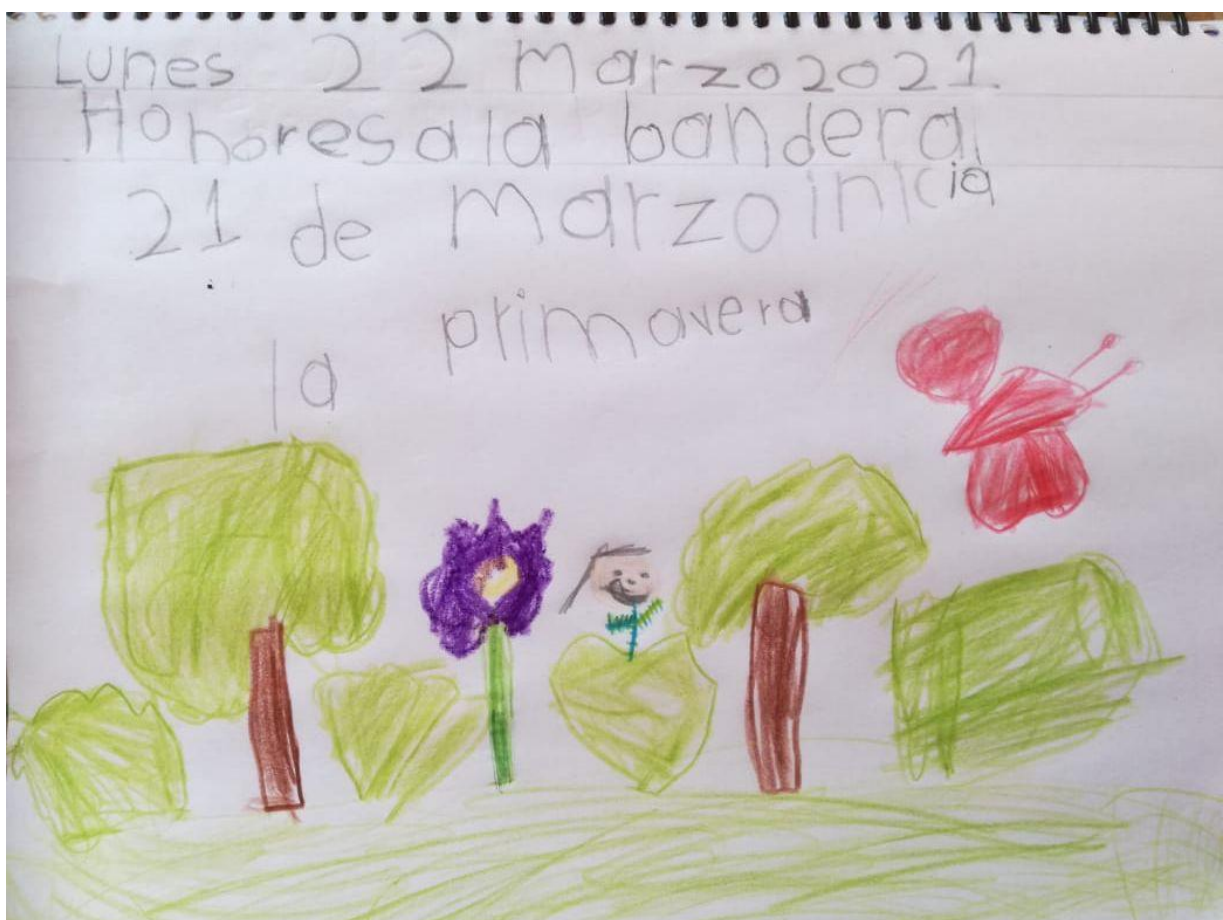 Lunes 22 Marzo 2021.
Honores a la bandera
21 de Marzo inicia
la primavera